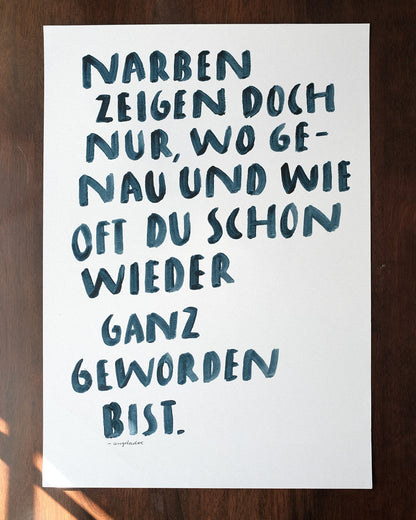 NARBEN
ZEIGEN DOCH
NUR, WO GE-
NAU UND WIE
OFT DU SCHON
WIEDER
GANZ
GEWORDEN
BIST.